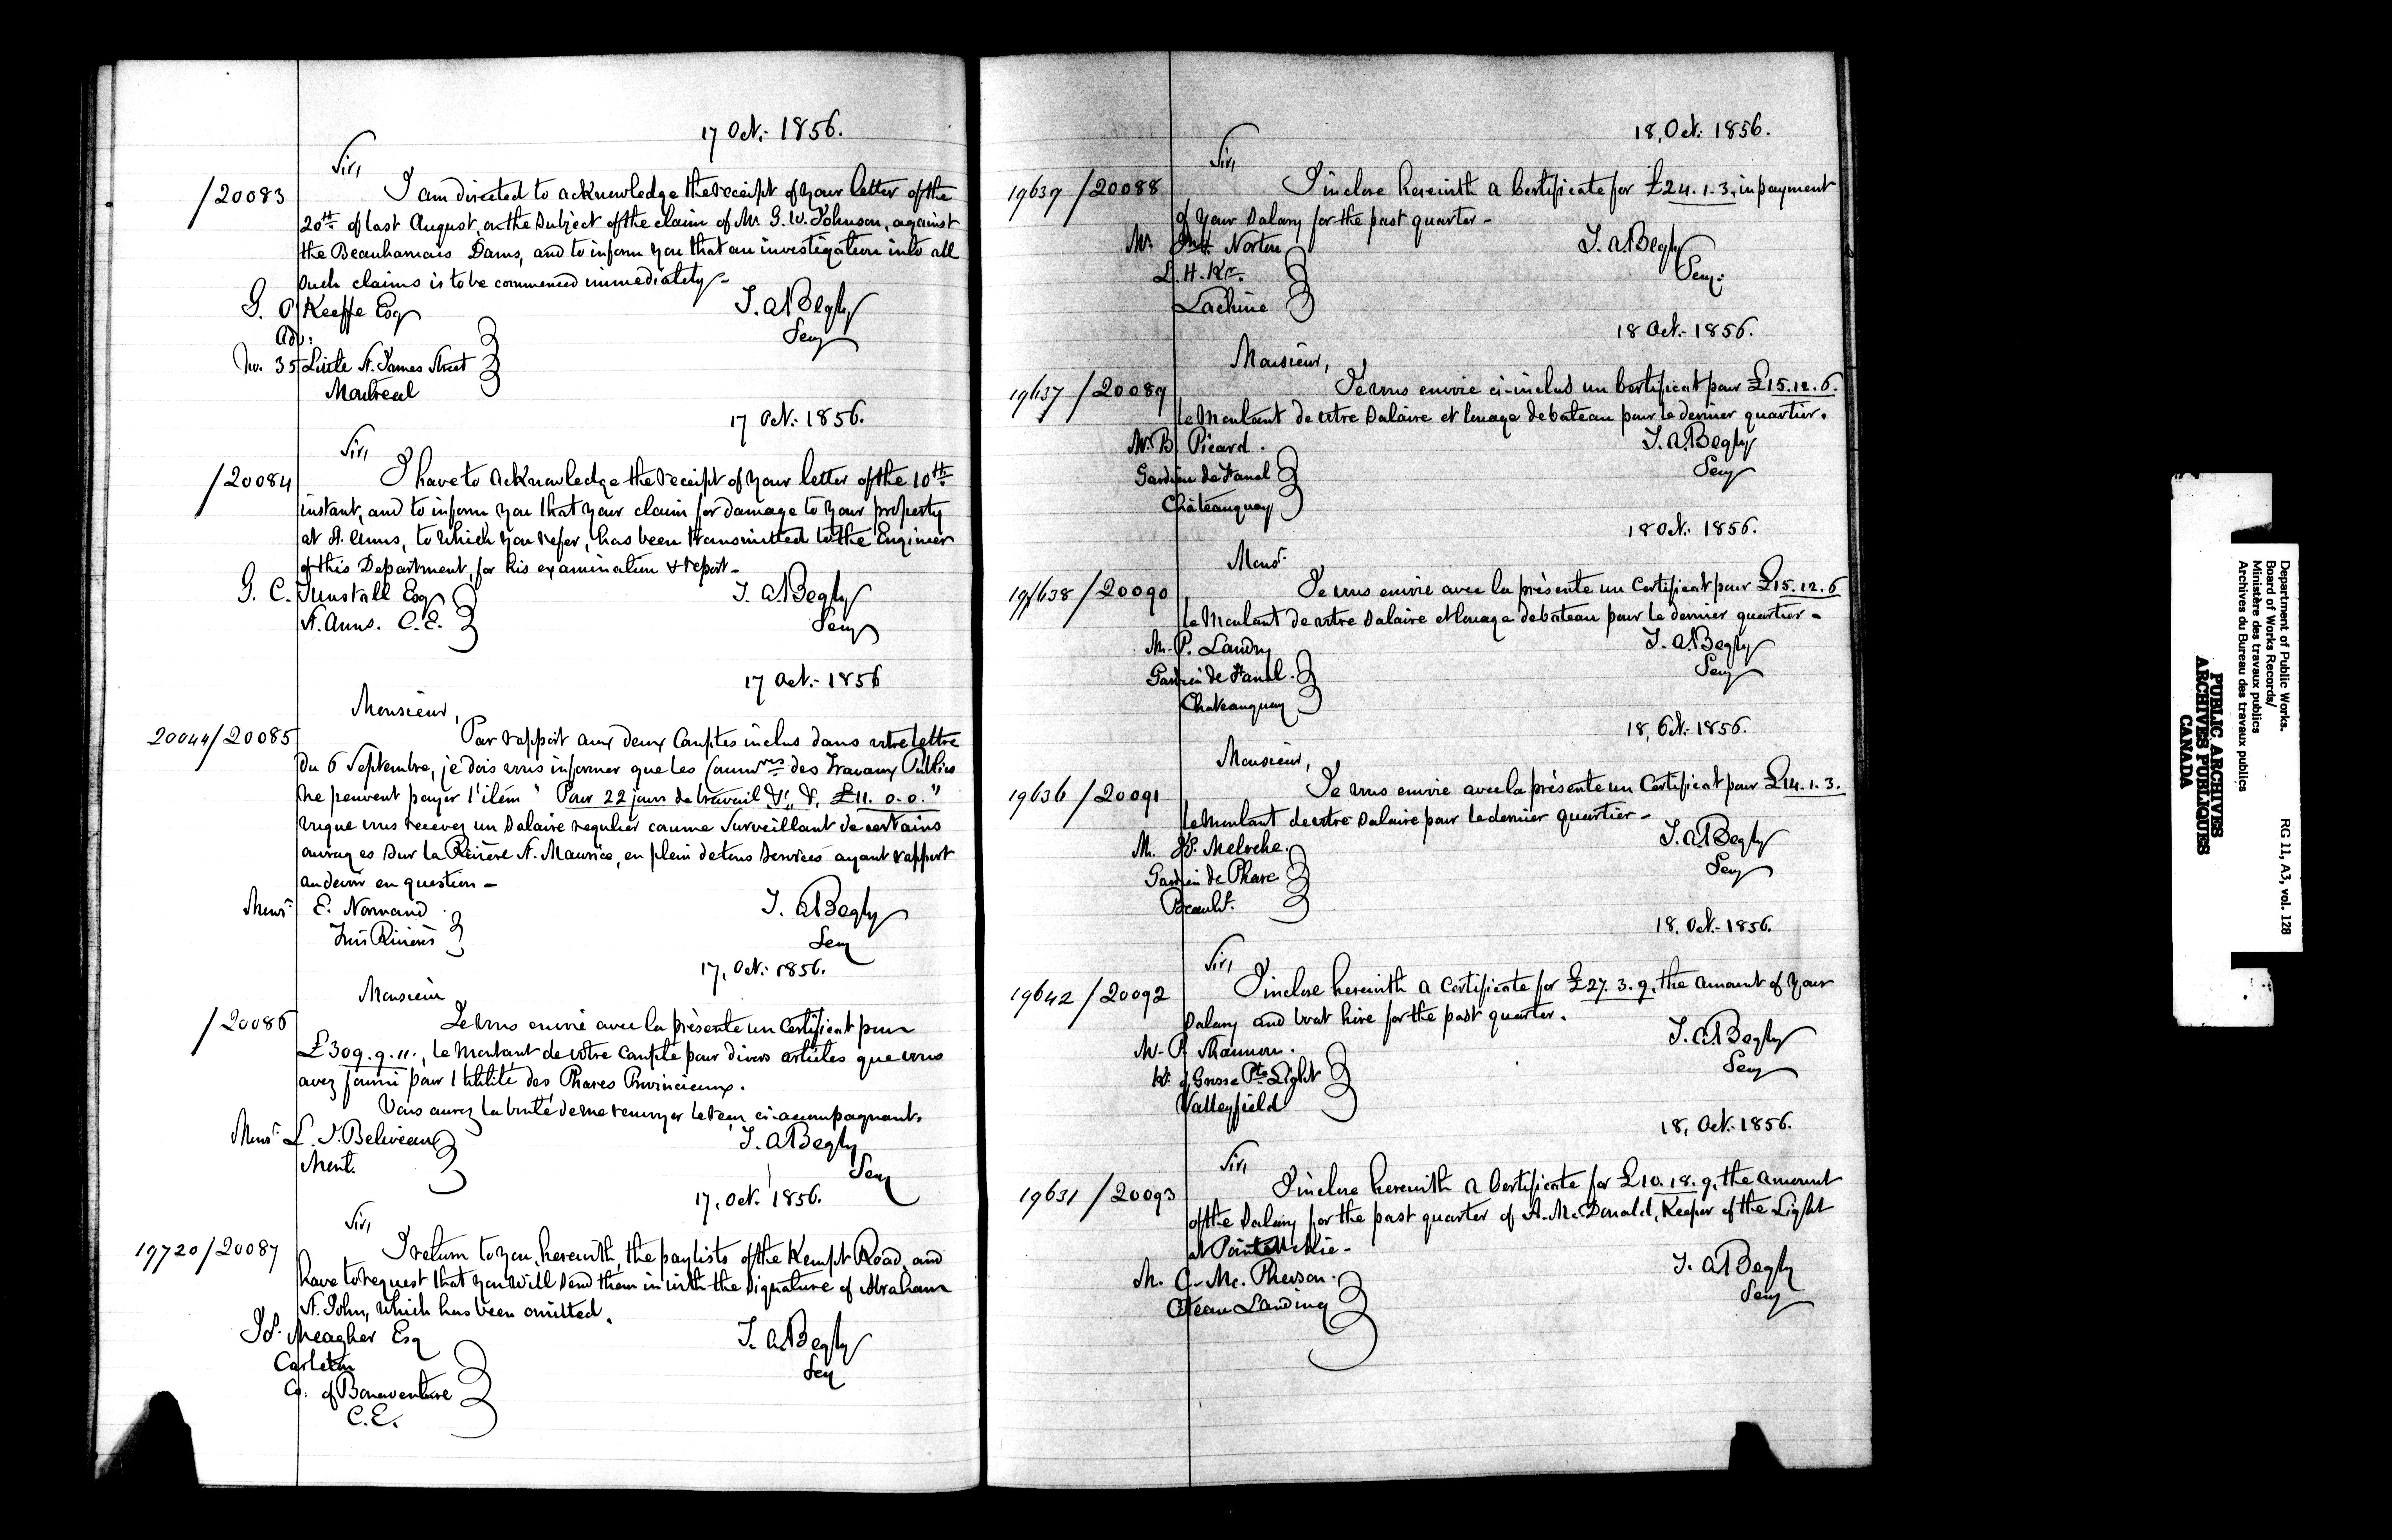 17 Oct: 1856.
Sir,
/20083 I am directed to acknowledge the receipt of your letter of the
20th of last August, on the subject of the claim of Mr. G. W. Johnson, against
the Beauharnais Dams, and to inform you that an investigation into all
such claims is to be commenced immediately -
G. O'Keeffe Esq T. A. Begly
Adv: Secy
No. 35 Little St. James Street
Montreal
17 Oct: 1856.
Sir,
/20084 I have to acknowledge the receipt of your letter of the 10th
instant, and to inform you that your claim for damage to your property
at St. Anns, to which you refer, has been transmitted to the Engineer
of this Department, for his examination & report -
G. C. Tunstall Esq T. A. Begly
St. Anns. C. E. Secy
17 Oct:- 1856
Monsieur,
20044/20085 Par rapport aux deux Comptes inclus dans votre lettre
du 6 Septembre, je dois vous informer que les Commres des Travaux Publics
ne peuvent payer l'item " Pour 22 jours de travail &c, &c, £11. 0. 0. "
vu que vous recevez un salaire regulier comme Surveillant de certains
ouvrages sur la Rivière St. Maurice, en plein de tous services ayant rapport
au devoir en question -
Monsr. E. Normand T. A. Begly
Trois Rivieres Secy
17, Oct: 1856.
Monsieur
/20086 Je vous envoie avec la présente un Certificat pour
£309. 9. 11., le montant de votre Compte pour divers articles que vous
avez fourni pour l'utilité des Phares Provinciaux.
Vous aurez la bonté de me renvoyer le recu ci-accompagnant.
Monsr. L. J. Beliveau T. A. Begly
Mont. Secy
17, Oct. 1856.
Sir,
19720/20087 I return to you, herewith, the paylists of the Kempt Road, and
have to request that you will send them in with the signature of Abraham
St. John, which has been omitted.
Js. Meagher Esq T. A. Begly
Carleton Secy
Co: of Bonaventure
C. E.
18, Oct: 1856.
Sir,
19639/20088 I inclose herewith a Certificate for £24. 1. 3, in payment
of your Salary for the past quarter -
Mr. Norton T. A. Begly
L. H. Kr. Secy:
Lachine
18 Oct:- 1856.
Monsieur,
19637/20089 Je vous envoie ci-inclus un Certificat pour £15. 12. 6.
le Montant de votre salaire et louage de bateau pour le dernier quartier.
Mr. B. Picard. T. A. Begly
Gardien de Fanal Secy
Châteauguay
18 Oct: 1856.
Monsr.
19638/20090 Je vous envoie avec la présente un Certificat pour £15. 12. 6
le Montant de votre salaire et louage de bateau pour le dernier quartier -
M. P. Landry T. A. Begly
Gardien de Fanal. Secy
Chateauguay
18, Oct: 1856.
Monsieur,
19636/20091 Je vous envoie avec la présente un Certificat pour £14. 1. 3.
le Montant de votre salaire pour le dernier quartier -
M. Meloche. T. A. Begly
Gardien de Phare Secy
Beauht.
18, Oct:- 1856.
Sir,
19642/20092 I inclose herewith a Certificate for £27. 3. 9, the amount of your
salary and boat hire for the past quarter.
Mr. P. Shannon. T. A. Begly
Kr. of Grosse Pte Light Secy
Valleyfield
18, Oct: 1856.
Sir,
19631/20093 I inclose herewith a Certificate for £10. 18. 9, the amount
of the Salary for the past quarter of A. McDonald, Keeper of the Light
at Pointe
M. C. Mc. Pherson. T. A. Begly
Coteau Landing Secy
Department of Public Works.
Board of Works Records/
Ministère des travaux publics
Archives du Bureau des travaux publics
RG 11, A3, vol. 128
PUBLIC ARCHIVES
ARCHIVES PUBLIQUES
CANADA